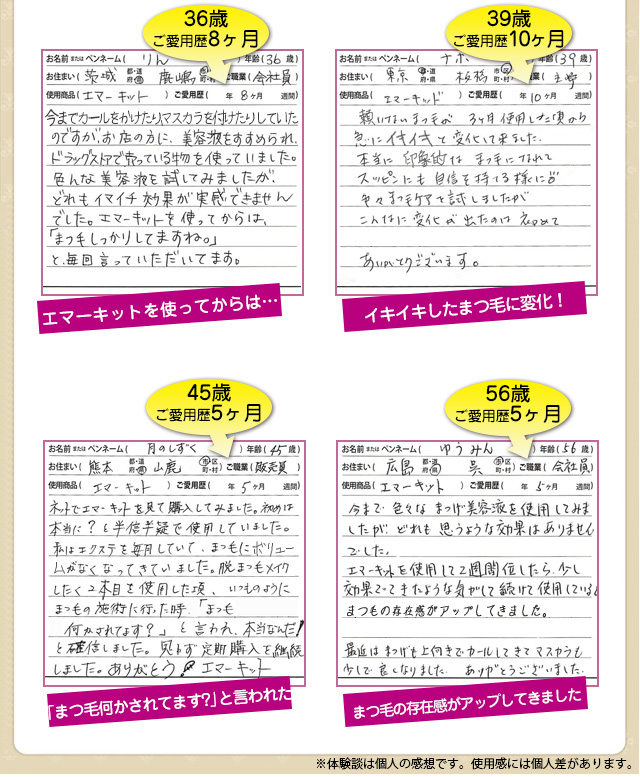 36歳
ご愛用歴8ヶ月
お名前またはペンネーム( りん )年齢(36歳)
お住まい( 茨城 都・道・府・県 鹿嶋 市・区・町・村)ご職業(会社員)
使用商品( エマーキット )ご愛用歴( 年 8ヶ月 週間)
今までカールをかけたりマスカラを付けたりしていた
のですが、お店の方に、美容液をすすめられ、
ドラッグストアで売っている物を使っていました。
色んな美容液を試してみましたが、
どれもイマイチ効果が実感できません
でした。エマーキットを使ってからは、
「まつ毛しっかりしてますね。」
と、毎回言っていただいてます。
エマーキットを使ってからは…
39歳
ご愛用歴10ヶ月
お名前またはペンネーム( ナホ )年齢(39歳)
お住まい( 東京 都・道・府・県 板橋 市・区・町・村)ご職業( 主婦 )
使用商品( エマーキッド )ご愛用歴( 年 10ヶ月 週間)
頼りないまつ毛が 3ヶ月使用した頃から
急にイキイキと変化して来ました。
本当に印象的な まつ毛になれて
スッピンにも自信を持てる様に!!
色々まつ毛ケアを試しましたが
こんなに変化が出たのは初めて
ありがとうございます。
イキイキしたまつ毛に変化!
45歳
ご愛用歴5ヶ月
お名前またはペンネーム( 月のしずく )年齢(45歳)
お住まい( 熊本 都・道・府・県 山鹿 市・区・町・村)ご職業(販売員)
使用商品( エマーキット )ご愛用歴( 年 5ヶ月 週間)
ネットでエマーキットを見て購入してみました。初めは
本当に?と半信半疑で使用していました。
私はエクステを毎月していて、まつ毛にボリュー
ムがなくなってきていました。脱まつ毛メイク
したく2本目を使用した頃、いつものように
まつ毛の施術に行った時、「まつ毛
何かされてます?」と言われ、本当なんだ!
と確信しました。見もず定期購入を継続
しました。ありがとう!エマーキット
「まつ毛何かされてます?」と言われた
56歳
ご愛用歴5ヶ月
お名前またはペンネーム( ゆうみん )年齢(56歳)
お住まい( 広島 都・道・府・県 呉 市・区・町・村)ご職業(会社員)
使用商品( エマーキット )ご愛用歴( 年 5ヶ月 週間)
今まで色々な まつげ美容液を使用してみま
したが、どれも思うような効果はありません
でした。
エマーキットを使用して2週間位したら、少し
効果でてきたような気がして続けて使用していると
まつ毛の存在感がアップしてきました。
最近はまつげも上向きでカールしてきてマスカラも
少しで良くなりました。ありがとうございました。
まつ毛の存在感がアップしてきました
※体験談は個人の感想です。使用感には個人差があります。